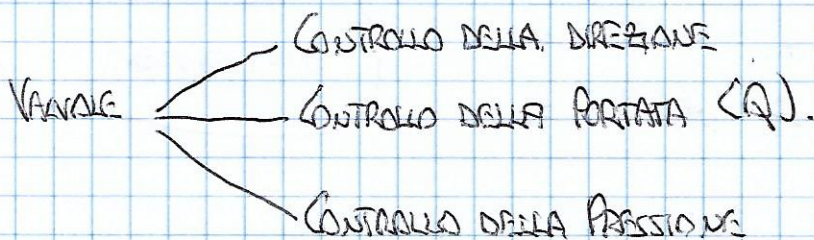 CONTROLLO DELLA DIREZIONE
VALVOLE
CONTROLLO DELLA PORTATA (Q).
CONTROLLO DELLA PRESSIONE